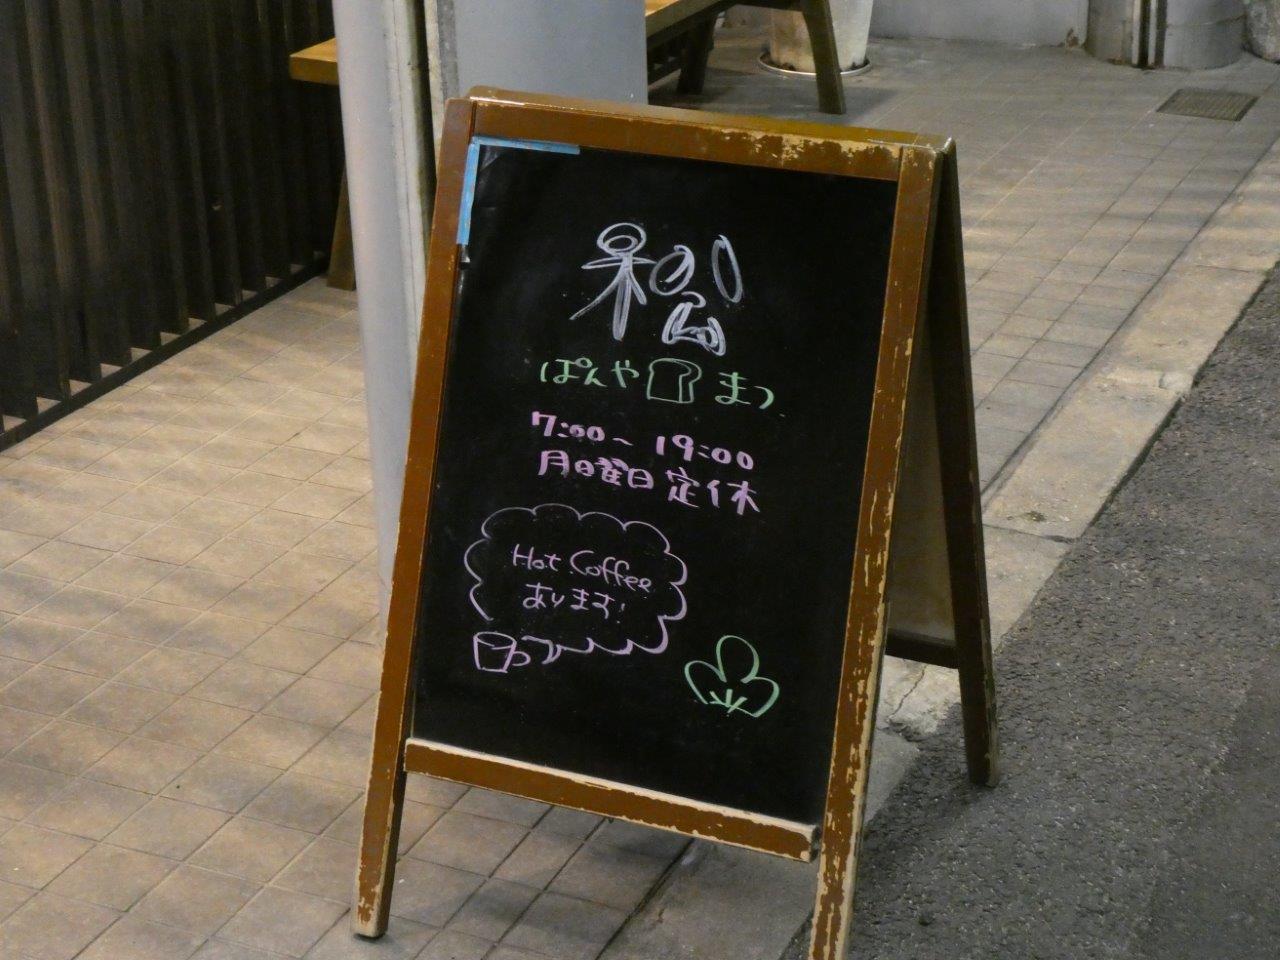 松
ぱんや まつ
7:00~19:00
月曜日定休
Hot Coffee
あります!